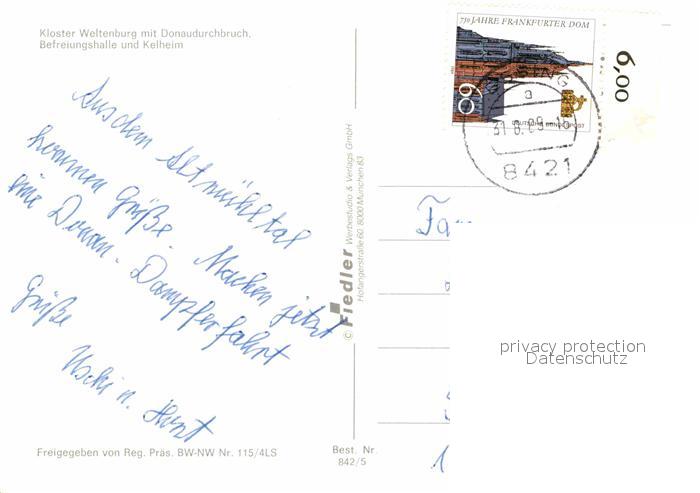 Kloster Weltenburg mit Donaudurchbruch,
Befreiungshalle und Kelheim
Aus dem Altmühltal
kommen Grüße. Machen jetzt
eine Donau-Dampferfahrt
Grüße
Uschi u. Horst
Freigegeben von Reg. Präs. BW-NW Nr. 115/4LS
Best. Nr.
842/5
© Fiedler Werbestudio & Verlags GmbH
Hofangerstraße 60 8000 München 83
750 JAHRE FRANKFURTER DOM
60
DEUTSCHE BUNDESPOST
6,00
a
31.8.89
8421
Fa
privacy protection
Datenschutz